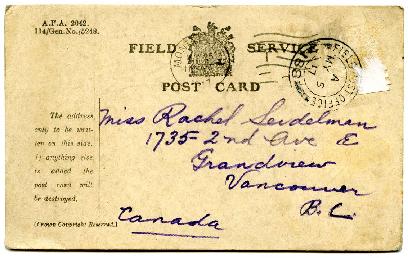 A.F.A. 2042.
114/Gen.No./5248.
FIELD SERVICE
POST CARD
FIELD POST OFFICE
MY 5
17
The address
only to be writ-
ten on this side.
If anything else
is added the
post card will
be destroyed.
[Crown Copyright Reserved.]
Miss Rachel Seidelman
1735-2nd Ave E
Grandview
Vancouver
B.C.
Canada